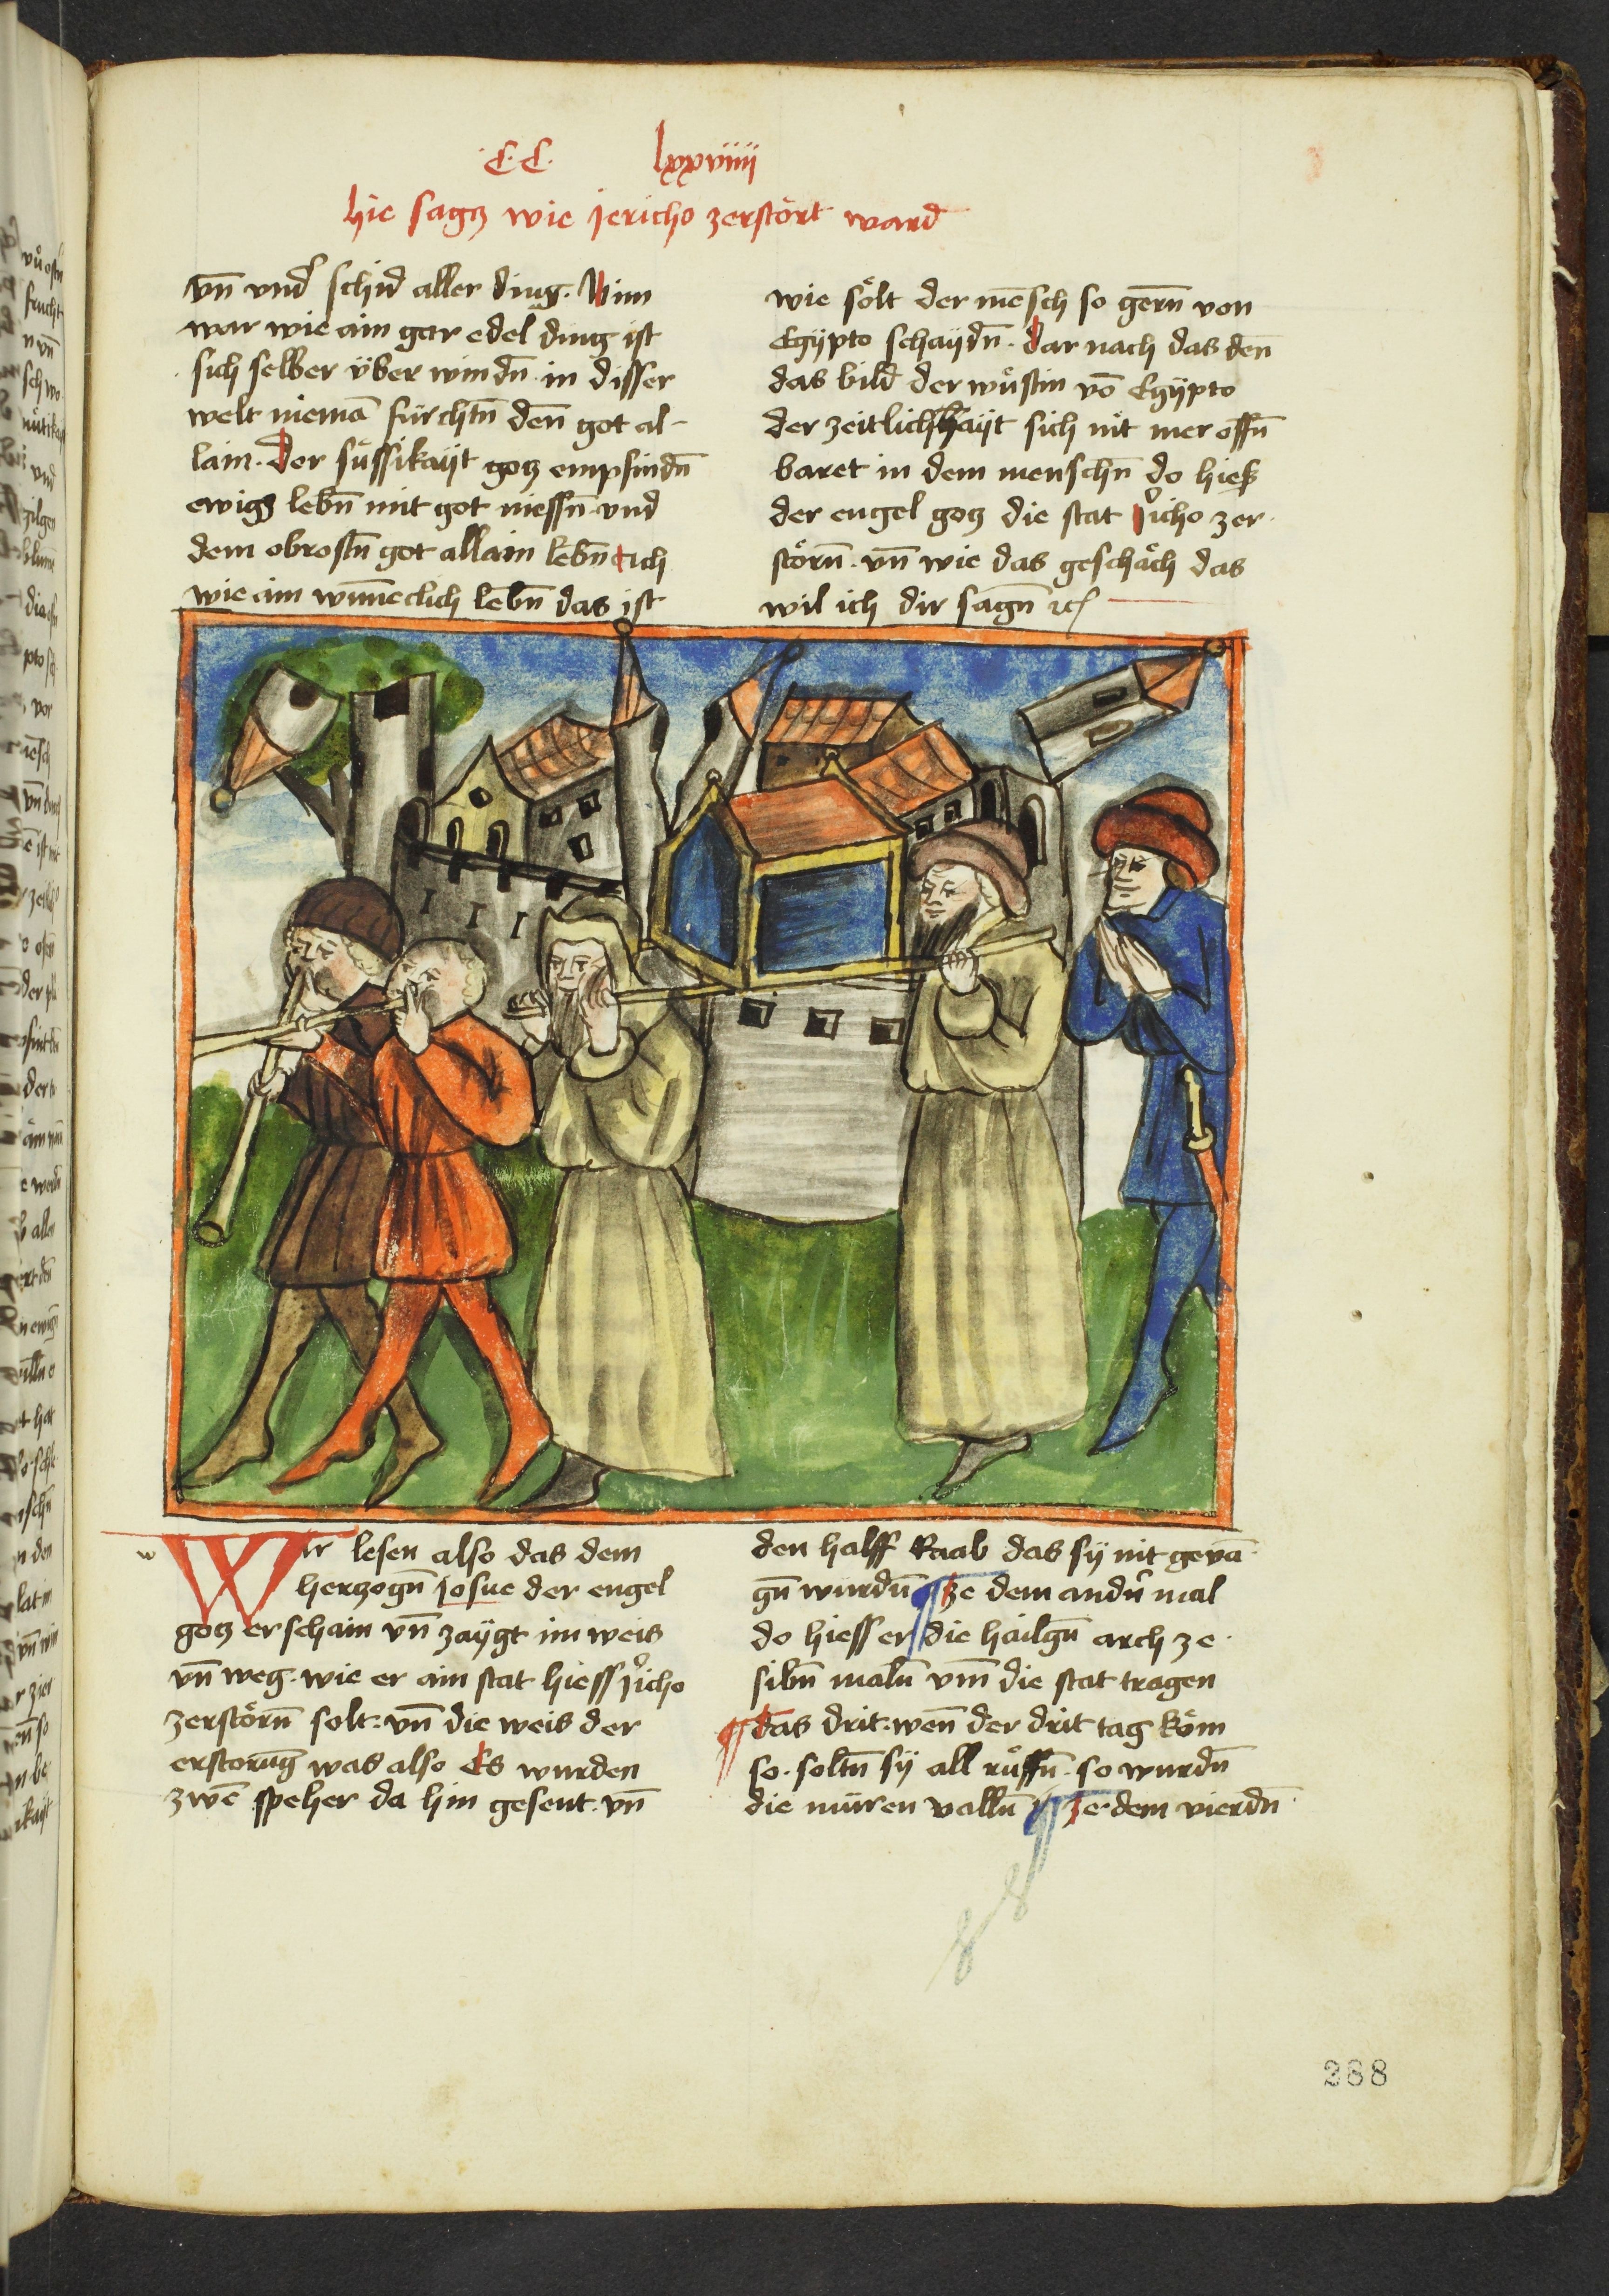 ·C·C· lxxviiii
hie sagz wie jericho zerstört ward
vn̄ vnd' schid aller ding. Nim
war wie ain gar edel ding ist
sich selber über windn̄ in disser
welt niemā fürchtn̄ den̄ got al-
lain. Der süssikaÿt gotz empfindn̄
ewigs lebn̄ mit got niessn̄ vnd
dem obrostn̄ got allain lebn̄
wie ain wunneclich lebn̄ das ist
wie sölt der mēsch so gern̄ von
Egÿpto schaÿdn̄. Dar nach das den̄
das bild der wüstin vō Egÿpto
der zeitlichhaÿt sich nit mer offn̄
baret in dem menschn̄ do hiess
der engel gotz die stat j'icho zer-
störn̄. vn̄ wie das geschäch das
wil ich dir sagn̄ ꝛc
w Wir lesen also das dem
hertzogn̄ josue der engel
gotz erschain vn̄ zaÿgt im weis
vn̄ weg. wie er ain stat hiess j'icho
zerstörn̄ solt: vn̄ die weis der
erstorūg was also Es wurden
zwē speher da hin gesent. vn̄
den halff Raab das sÿ nit gevā-
gn̄ wurdn̄ ¶ ze dem andn̄ mal
do hiess er die hailgn̄ arch ze-
sibn̄ maln̄ vm̄ die stat tragen
¶ das drit: wen̄ der drit tag köm
so. soltn̄ sÿ all rüffn̄. so wurdn̄
die müren valln̄ ¶ ze dem vierdn̄
288